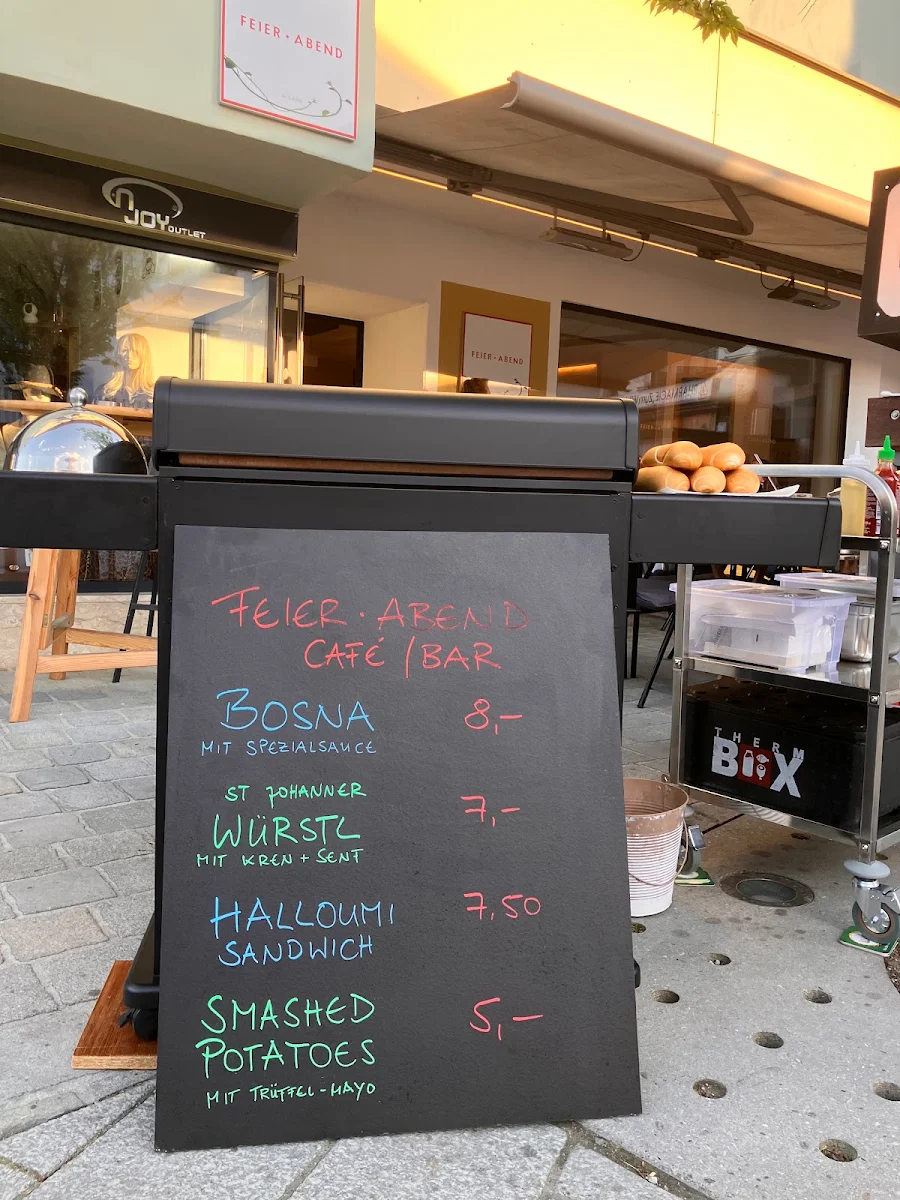 FEIER · ABEND
n JOY OUTLET
FEIER · ABEND
FEIER · ABEND
CAFÉ / BAR
BOSNA 8,–
MIT SPEZIALSAUCE
ST JOHANNER
WÜRSTL 7,–
MIT KREN + SENF
HALLOUMI 7,50
SANDWICH
SMASHED
POTATOES 5,–
MIT TRÜFFEL-MAYO
THERM
BOX